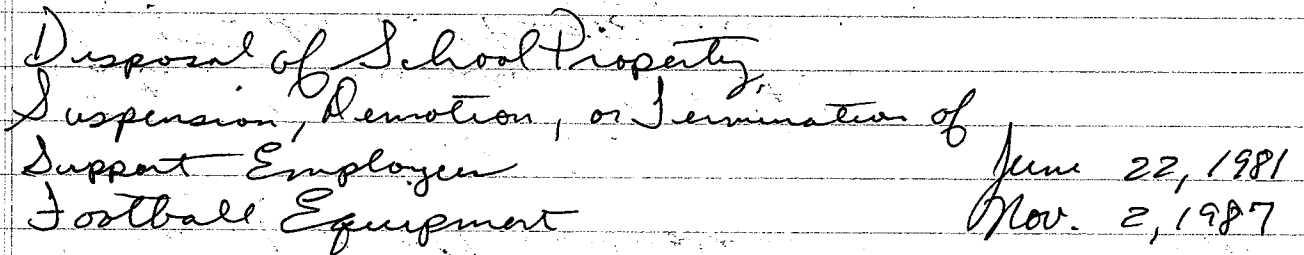 Disposal of School Property,
Suspension, Demotion, or Termination of
Support Employees June 22, 1981
Football Equipment Nov. 2, 1987